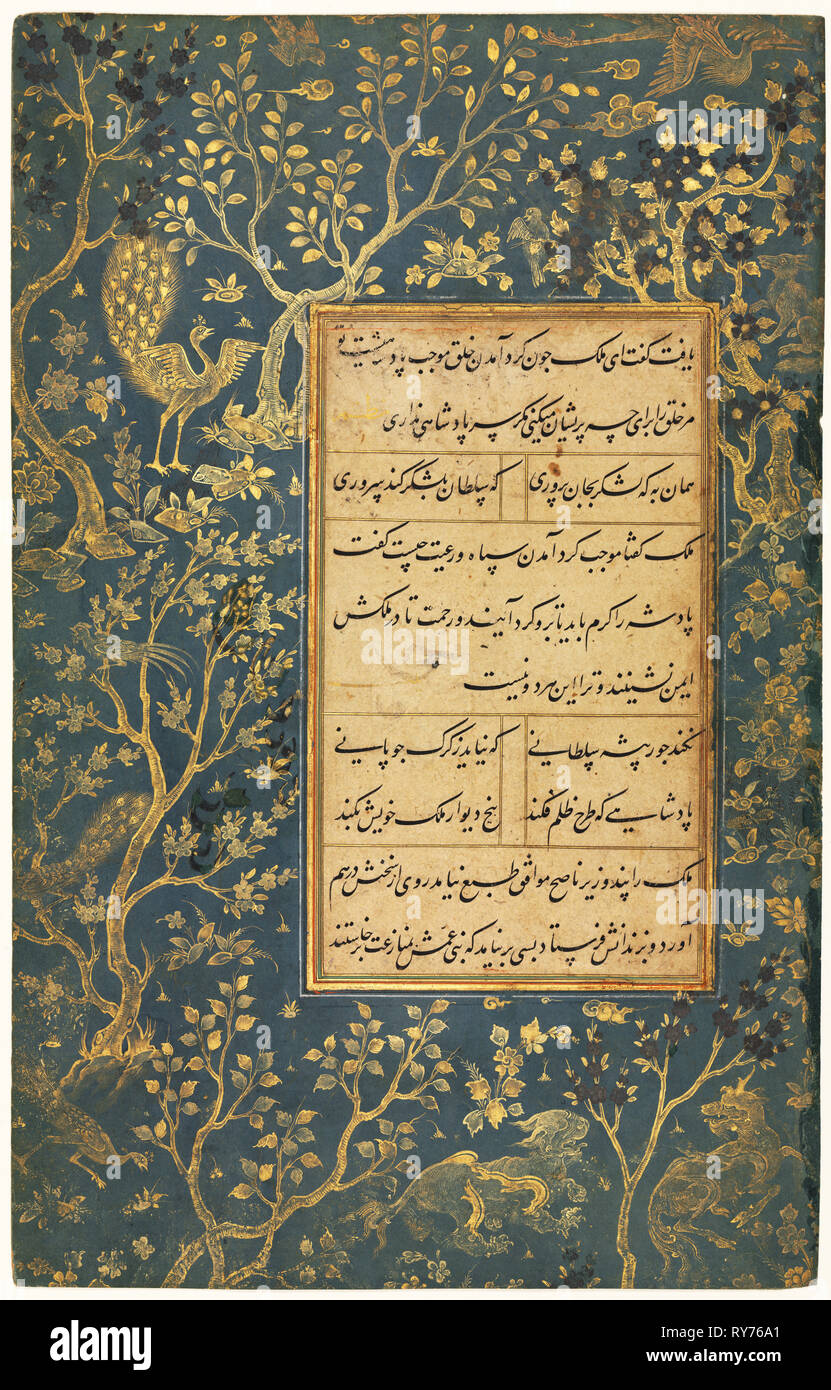 یافت گفت ای ملک چون گرد آمدن خلق موجب پادشاهیست تو
مر خلق را برای چه پریشان میکنی مگر سر پادشاهی نداری
همان به که لشکر بجان پروری که سلطان بلشکر کند سروری
ملک گفتا موجب گرد آمدن سپاه و رعیت چیست گفت
پادشه را کرم باید تا برو گرد آیند و رحمت تا در ملکش
ایمن نشینند و ترا این هر دو نیست
نکند جور پیشه سلطانی که نیاید ز گرگ چوپانی
پادشاهی که طرح ظلم فکند بیخ دیوار ملک خویش بکند
ملک را پند وزیر ناصح موافق طبع نیامد روی از سخنش درهم
آورد و بزندانش فرستاد بسی برنیامد که بنی عمش بمنازعت برخاستند
alamy
Image ID: RY76A1
www.alamy.com